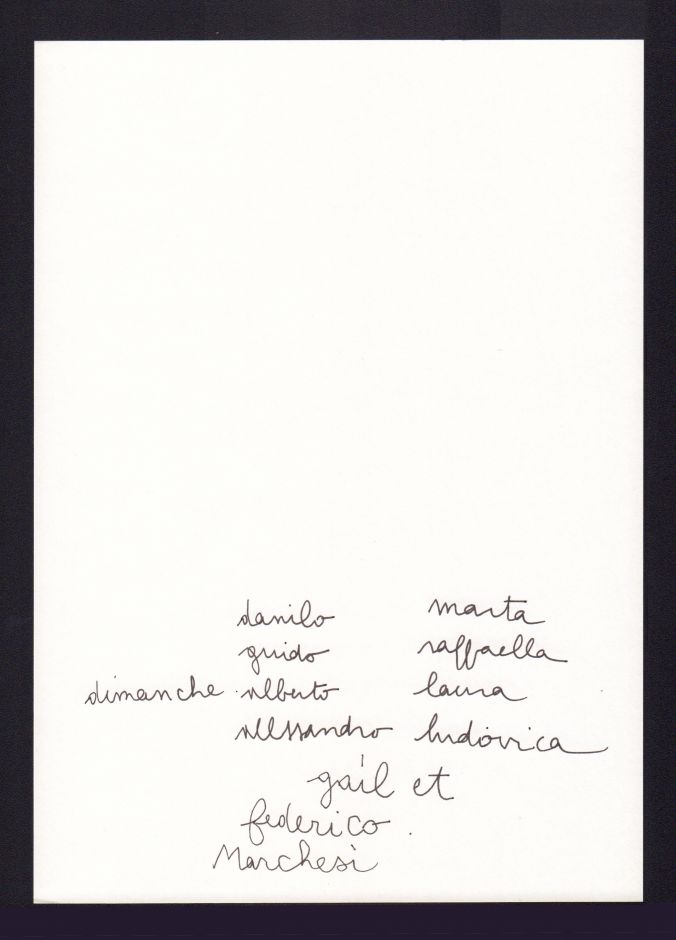 danilo marta
guido raffaella
dimanche alberto laura
alessandro ludovica
gail et
federico.
Marchesi